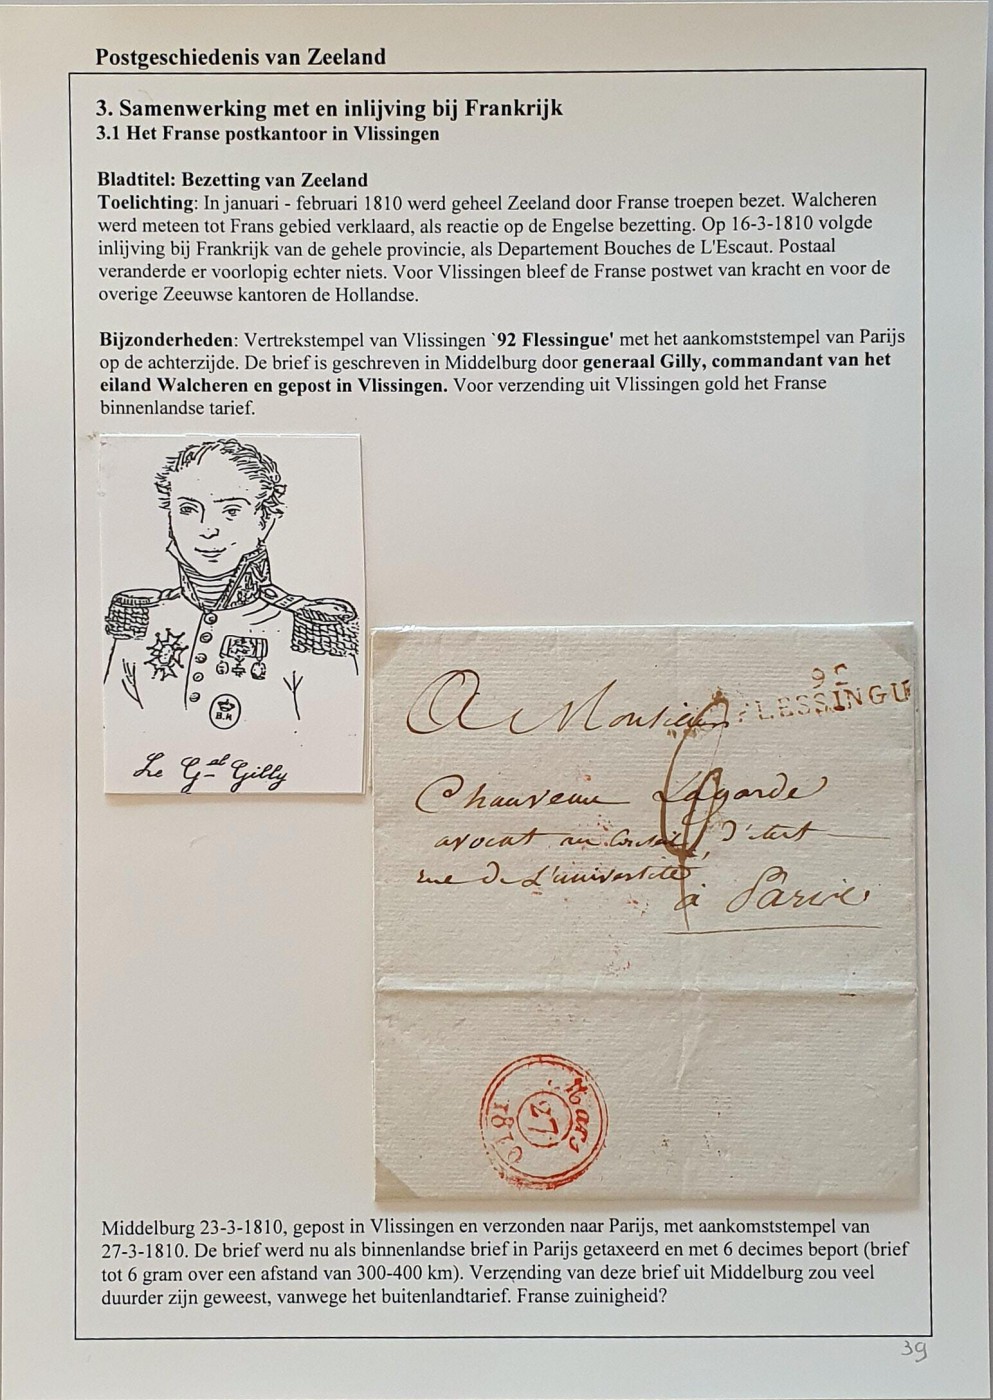 Postgeschiedenis van Zeeland
3. Samenwerking met en inlijving bij Frankrijk
3.1 Het Franse postkantoor in Vlissingen
Bladtitel: Bezetting van Zeeland
Toelichting: In januari - februari 1810 werd geheel Zeeland door Franse troepen bezet. Walcheren
werd meteen tot Frans gebied verklaard, als reactie op de Engelse bezetting. Op 16-3-1810 volgde
inlijving bij Frankrijk van de gehele provincie, als Departement Bouches de L'Escaut. Postaal
veranderde er voorlopig echter niets. Voor Vlissingen bleef de Franse postwet van kracht en voor de
overige Zeeuwse kantoren de Hollandse.
Bijzonderheden: Vertrekstempel van Vlissingen `92 Flessingue' met het aankomststempel van Parijs
op de achterzijde. De brief is geschreven in Middelburg door generaal Gilly, commandant van het
eiland Walcheren en gepost in Vlissingen. Voor verzending uit Vlissingen gold het Franse
binnenlandse tarief.
B.M
Le Gal Gilly
9
FLESSINGU
A Monsieur
6
Chauveau Lagarde
avocat au Conseil d'etat
rue de L'université
à Paris
Mars
27
1810
Middelburg 23-3-1810, gepost in Vlissingen en verzonden naar Parijs, met aankomststempel van
27-3-1810. De brief werd nu als binnenlandse brief in Parijs getaxeerd en met 6 decimes beport (brief
tot 6 gram over een afstand van 300-400 km). Verzending van deze brief uit Middelburg zou veel
duurder zijn geweest, vanwege het buitenlandtarief. Franse zuinigheid?
39